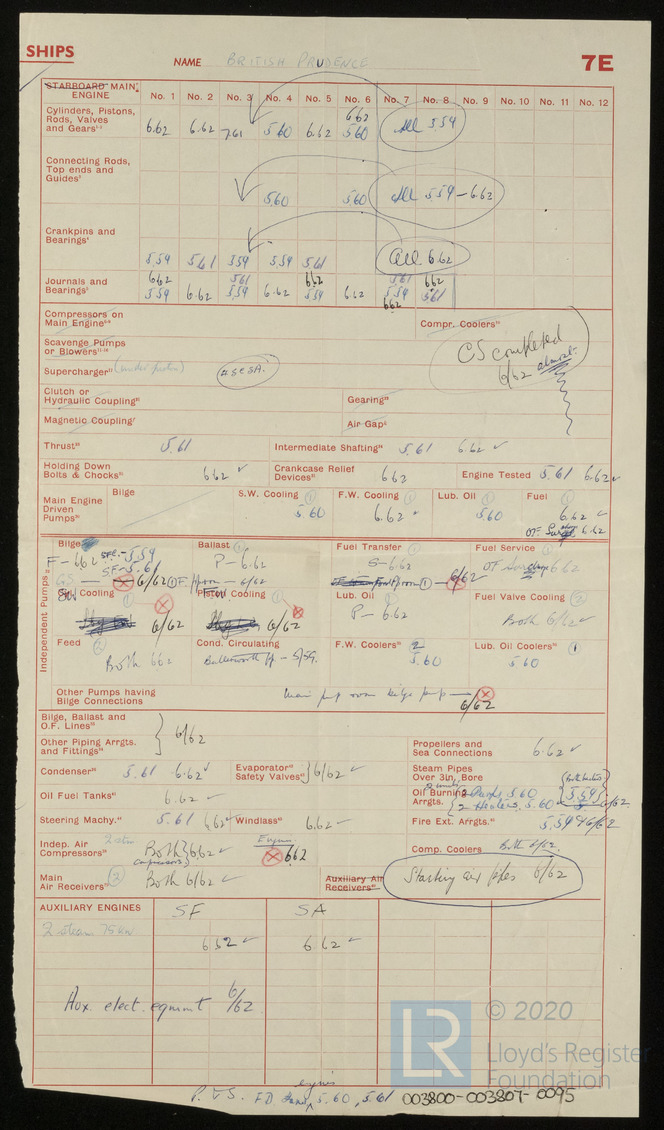 SHIPS
NAME BRITISH PRUDENCE 7E
STARBOARD MAIN ENGINE No. 1 No. 2 No. 3 No. 4 No. 5 No. 6 No. 7 No. 8 No. 9 No. 10 No. 11 No. 12
Cylinders, Pistons, Rods, Valves and Gears 6.62 6.62 7.61 5.60 6.62 6.62 5.60 All 5.59
Connecting Rods, Top ends and Guides 5.60 5.60 All 5.59 - 6.62
Crankpins and Bearings 5.59 5.61 5.59 5.59 5.61 All 6.62
Journals and Bearings 6.62 5.59 6.62 5.61 5.59 6.62 6.62 5.59 6.62 5.61 5.59 6.62 6.62 5.61
Compressors on Main Engine Compr. Coolers
Scavenge Pumps or Blowers
CS completed 6/62 almost
Supercharger
Clutch or Hydraulic Coupling Gearing
Magnetic Coupling Air Gap
Thrust 5.61 Intermediate Shafting 5.61 6.62 ✓
Holding Down Bolts & Chocks 6.62 ✓ Crankcase Relief Devices 6.62 Engine Tested 5.61 6.62 ✓
Main Engine Driven Pumps Bilge S.W. Cooling (1) 5.60 F.W. Cooling (1) 6.62 Lub. Oil (1) 5.60 Fuel (1) 6.62 ✓
OF. 6.62
Independent Pumps
Bilge Ballast Fuel Transfer Fuel Service
F - 6.62 5.59 P - 6.62 S - 6.62 OF 6.62
GS - 6/62 6/62 6/62
Cooling Cooling Lub. Oil Fuel Valve Cooling
6/62 6/62 P - 6.62 Both 6/62 ✓
Feed Cond. Circulating F.W. Coolers 2 Lub. Oil Coolers 1
Both 6.62 Butterworth pp - 5/59. 5.60 5.60
Other Pumps having Bilge Connections main pump room bilge pump - 6/62
Bilge, Ballast and O.F. Lines
Other Piping Arrgts. and Fittings } 6/62
Propellers and Sea Connections 6.62 ✓
Condenser 5.61 6.62 ✓ Evaporator Safety Valves } 6/62 ✓ Steam Pipes Over 3in. Bore
Oil Fuel Tanks 6.62 ✓ Oil Burning Arrgts. 2 units Pumps 5.60 2 Heaters, 5.60 5.59 6/62
Steering Machy. 5.61 6.62 ✓ Windlass 6.62 ✓ Fire Ext. Arrgts. 5.59 6/62
Indep. Air Compressors 2 stm Both compressors 6.62 ✓ Engines 6.62 Comp. Coolers Both 6/62.
Main Air Receivers (2) Both 6/62 ✓ Auxiliary Air Receivers Starting air pipes 6/62
AUXILIARY ENGINES SF SA
2 steam 75 KW 6.62 ✓ 6.62 ✓
Aux. elect. eqmunt 6/62
LR © 2020
Lloyd's Register
Foundation
P. & S. F.D. fans engines 5.60, 5.61 003800-003807-0095